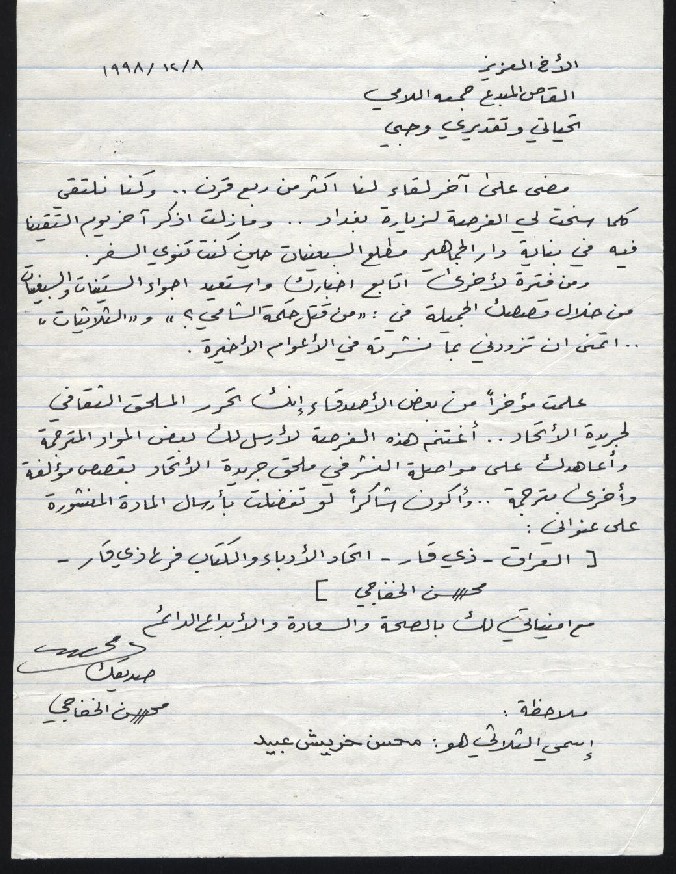 ١٩٩٨/١٢/٨
الأخ العزيز
القاص المبدع جمعه اللامي
تحياتي وتقديري وحبي
مضى على آخر لقاء لنا اكثر من ربع قرن .. وكنا نلتقي
كلما سنحت لي الفرصة لزيارة بغداد .. ومازلت اذكر آخر يوم التقينا
فيه في بناية دار الجماهير مطلع السبعينات حين كنت تنوي السفر.
ومن فترة لأخرى اتابع اخبارك واستعيد اجواء الستينات والسبعينات
من خلال قصصك الجميلة في : «من قتل حكمة الشامي؟» و«الثلاثيات»
.. اتمنى ان تزودني بما نشرته في الأعوام الأخيرة .
علمت مؤخراً من بعض الأصدقاء إنك تحرر الملحق الثقافي
لجريدة الأتحاد .. أغتنم هذه الفرصة لأرسل لك بعض المواد المترجمة
وأعاهدك على مواصلة النشر في ملحق جريدة الأتحاد بقصص مؤلفة
وأخرى مترجمة .. وأكون شاكراً لو تفضلت بأرسال المادة المنشورة
على عنواني :
[ العراق - ذي قار - اتحاد الأدباء والكتاب فرع ذي قار -
محسن الخفاجي ]
مع امنياتي لك بالصحة والسعادة والأبداع الدائم
صديقك
محسن الخفاجي
ملاحظة :
إسمي الثلاثي هو: محسن خريبش عبيد